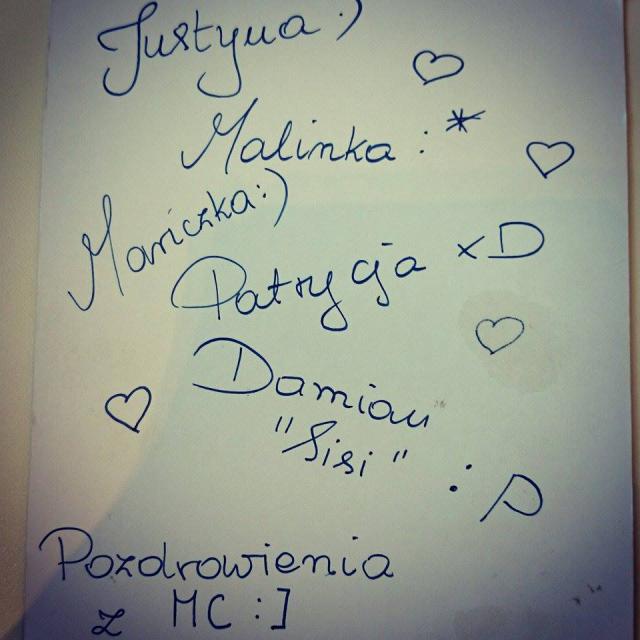 Justyna :)
Malinka :*
Mariczka :)
Patrycja xD
Damian
"Sisi" :P
Pozdrowienia
z MC :]